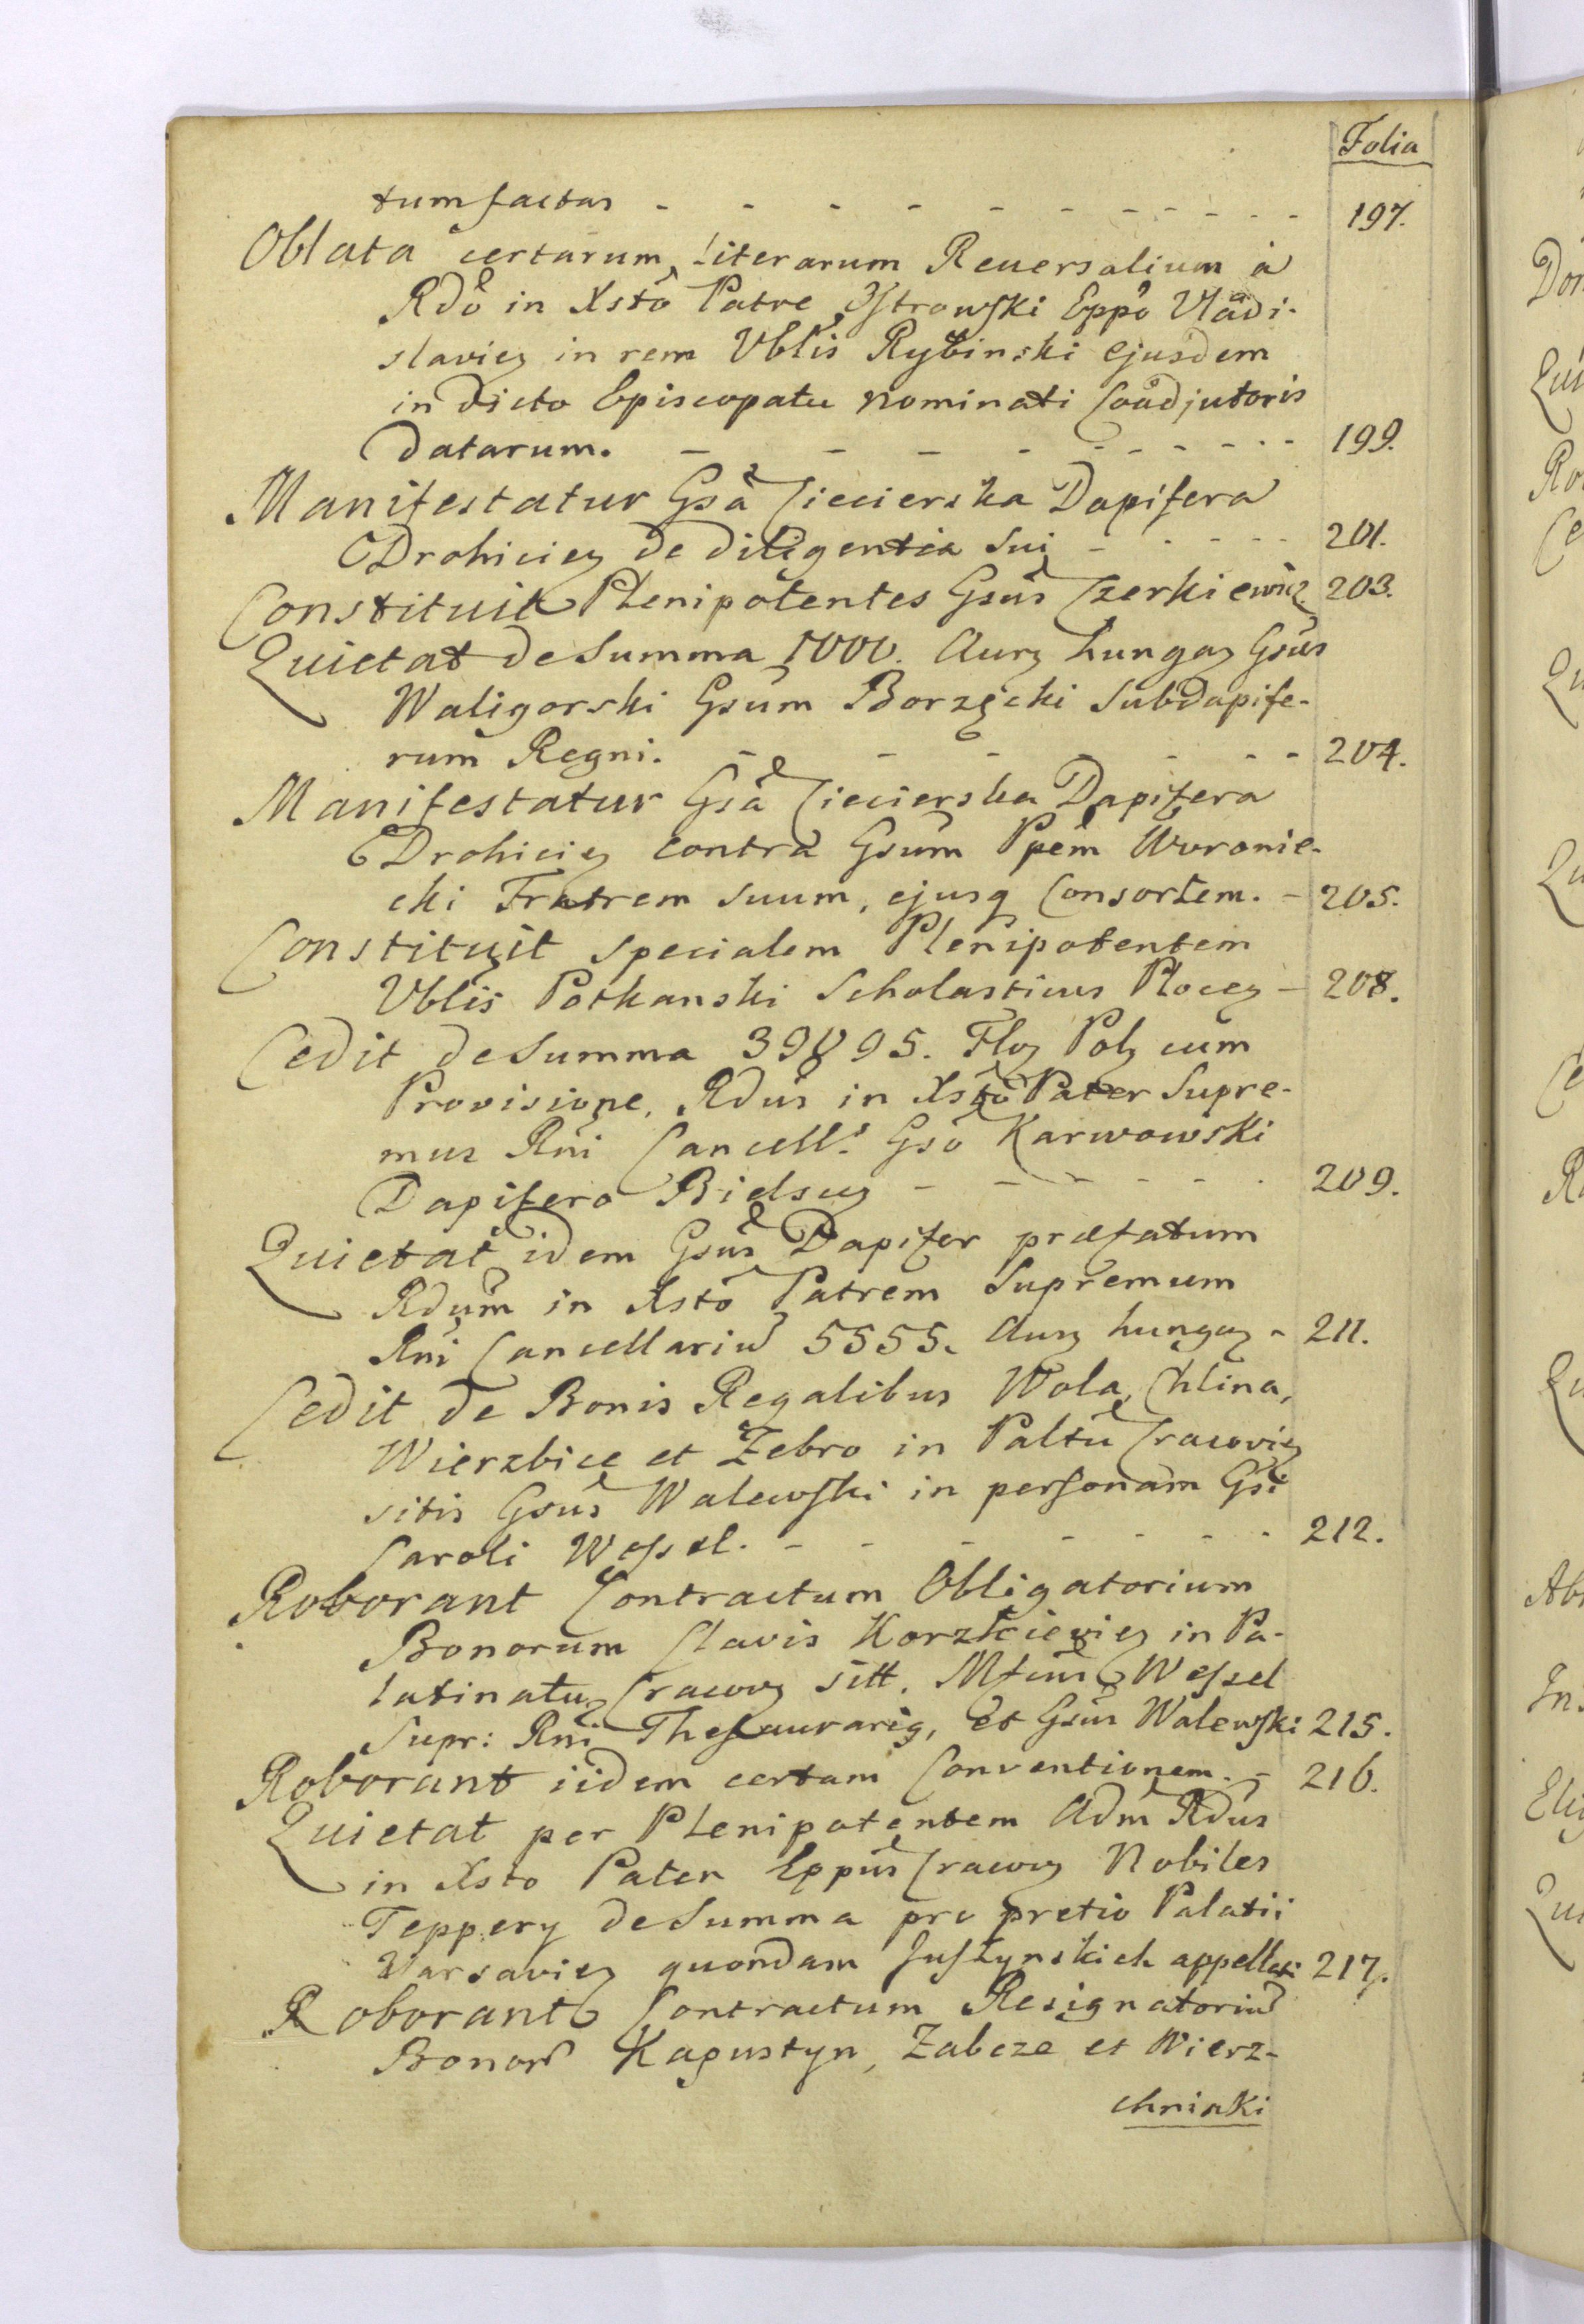 Folia
tum factas - - - - - - - - - - - 197.
Oblata certarum Literarum Reuersalium à
Rdō in Xstō Patre Ostrowski Eppō Vladi-
slavien in rem Vblis Rybinski ejusdem
in dicto Episcopatu nominati Coadjutoris
datarum. - - - - - - - - - 199.
Manifestatur Gsā Ciecierska Dapifera
Drohicien de diligentia sui - - - - - 201.
Constituit Plenipotentes Gsūs Czerkiewicz 203.
Quietat de Summa 1000. Aur hungar Gsūs
Waligorski Gsūm Borzęcki Subdapife-
rum Regni. - - - - - - - 204.
Manifestatur Gsā Ciecierska Dapifera
Drohicien contra Gsūm Ppēm Woronie-
cki Fratrem suum, ejusq Consortem. - 205.
Constituit specialem Plenipotentem
Vblis Potkanski Scholasticus Plocen - 208.
Cedit de Summa 39895. Flor Pol cum
Provisione, Rdūs in Xstō Pater Supre-
mus Rni Cancell: Gsō Karwowski
Dapifero Bielscen - - - - - - 209.
Quietat idem Gsūs Dapifer præfatum
Rdūm in Xstō Patrem Supremum
Rni Cancellariū 5555. Aur hungar - 211.
Cedit de Bonis Regalibus Wola, Chlina,
Wierzbice et Zebro in Paltū Cracovien
sitis Gsūs Walewski in personam Gsi
Caroli Wessel. - - - - - - - 212.
Roborant Contractum Obligatorium
Bonorum Clavis Korzkiewien in Pa-
latinatu Cracov sitt. Mfcus Wessel
Supr: Rni Thesaurarig, et Gsūs Walewski 215.
Roborant iidem certam Conventionem. - 216.
Quietat per Plenipotentem Adm Rdūs
in Xsto Pater Eppūs Cracov Nobiles
Teppery de Summa pro pretio Palatii
Varsavien quondam Juszynskich appellati 217.
Roborant Contractum Resignatoriū
Bonor Kapustyn, Zabcze et Wierz-
chniaki